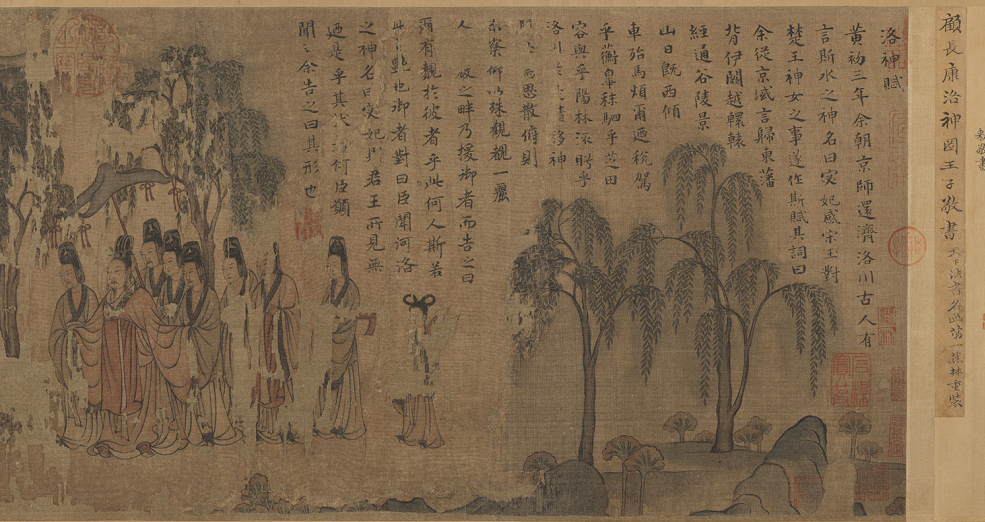 顧長康洛神圖王子敬書
天下法書名畫第一蕉林重裝
洛神賦
黃初三年余朝京師還濟洛川古人有
言斯水之神名曰宓妃感宋玉對
楚王神女之事遂作斯賦其詞曰
余從京域言歸東藩
背伊闕越轘轅
經通谷陵景
山日既西傾
車殆馬煩爾迺稅駕
乎蘅皋秣駟乎芝田
容與乎陽林流眄乎
洛川於是精移神
焉思散俯則
未察仰以殊觀覩一麗
人 之畔乃援御者而告之曰
爾有覿於彼者乎此何人斯若
此 艷也御者對曰臣聞河洛
之神名曰宓妃則君王所見無
迺是乎其狀 何臣願
聞之余告之曰其形也